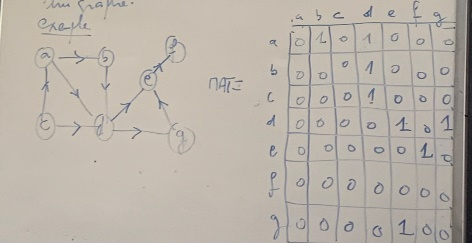 exemple
a b e
c d g
MAT=
a b c d e f g
a 0 1 0 1 0 0 0
b 0 0 0 1 0 0 0
c 0 0 0 1 0 0 0
d 0 0 0 0 1 0 1
e 0 0 0 0 0 1 0
f 0 0 0 0 0 0 0
g 0 0 0 0 1 0 0